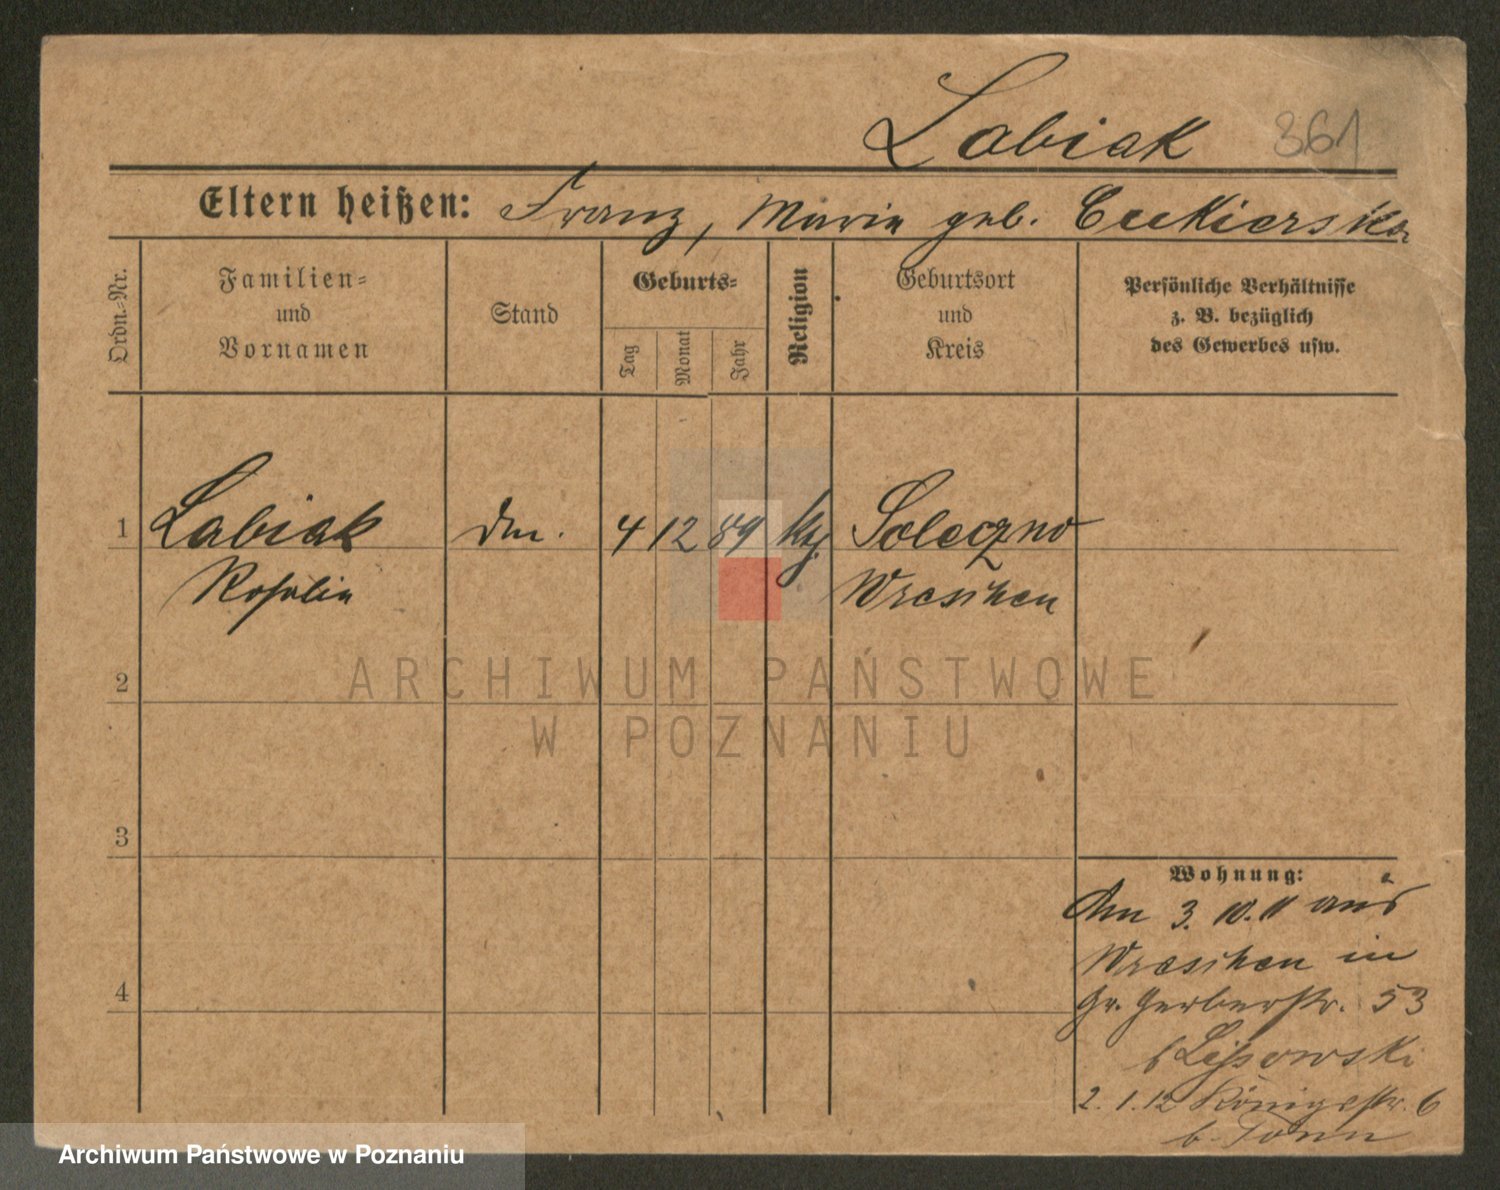 Labiak 361
Eltern heißen: Franz, Maria geb. Cukierska
Ordn.-Nr.
Familien-
und
Vornamen
Stand
Geburts-
Tag
Monat
Jahr
Religion
Geburtsort
und
Kreis
Persönliche Verhältnisse
z. B. bezüglich
des Gewerbes usw.
1 Labiak 4 12 89 Soleczno
Rosalie Wreschen
2
ARCHIWUM PAŃSTWOWE
W POZNANIU
3
Wohnung:
Am 3. 10. 11 aus
Wreschen in
4
Gr. Gerberstr. 53
b Lissowski
2. 1. 12 Königsstr. 6
b. Tonn
Archiwum Państwowe w Poznaniu